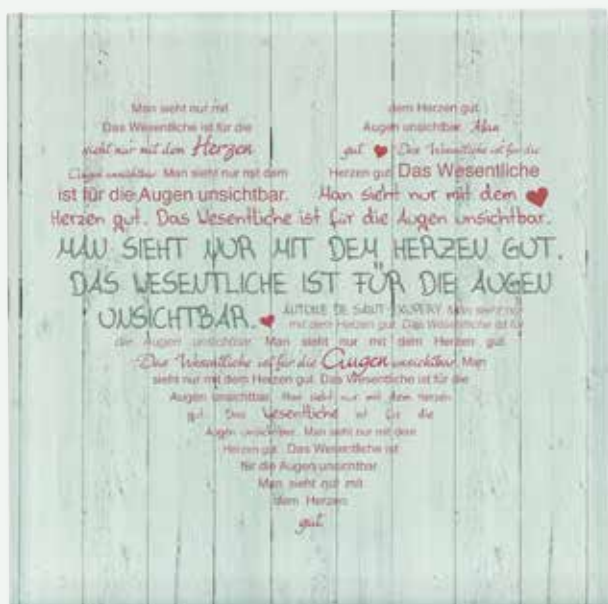 Man sieht nur mit dem Herzen gut.
Das Wesentliche ist für die Augen unsichtbar. Man
sieht nur mit dem Herzen gut Das Wesentliche ist für die
Augen unsichtbar. Man sieht nur mit dem Herzen gut. Das Wesentliche
ist für die Augen unsichtbar. Man sieht nur mit dem
Herzen gut. Das Wesentliche ist für die Augen unsichtbar.
MAN SIEHT NUR MIT DEM HERZEN GUT.
DAS WESENTLICHE IST FÜR DIE AUGEN
UNSICHTBAR. ANTOINE DE SAINT-EXUPÉRY Man sieht nur
mit dem Herzen gut. Das Wesentliche ist für
die Augen unsichtbar. Man sieht nur mit dem Herzen gut.
Das Wesentliche ist für die Augen unsichtbar. Man
sieht nur mit dem Herzen gut. Das Wesentliche ist für die
Augen unsichtbar. Man sieht nur mit dem Herzen
gut. Das Wesentliche ist für die
Augen unsichtbar. Man sieht nur mit dem
Herzen gut. Das Wesentliche ist
für die Augen unsichtbar.
Man sieht nur mit
dem Herzen
gut